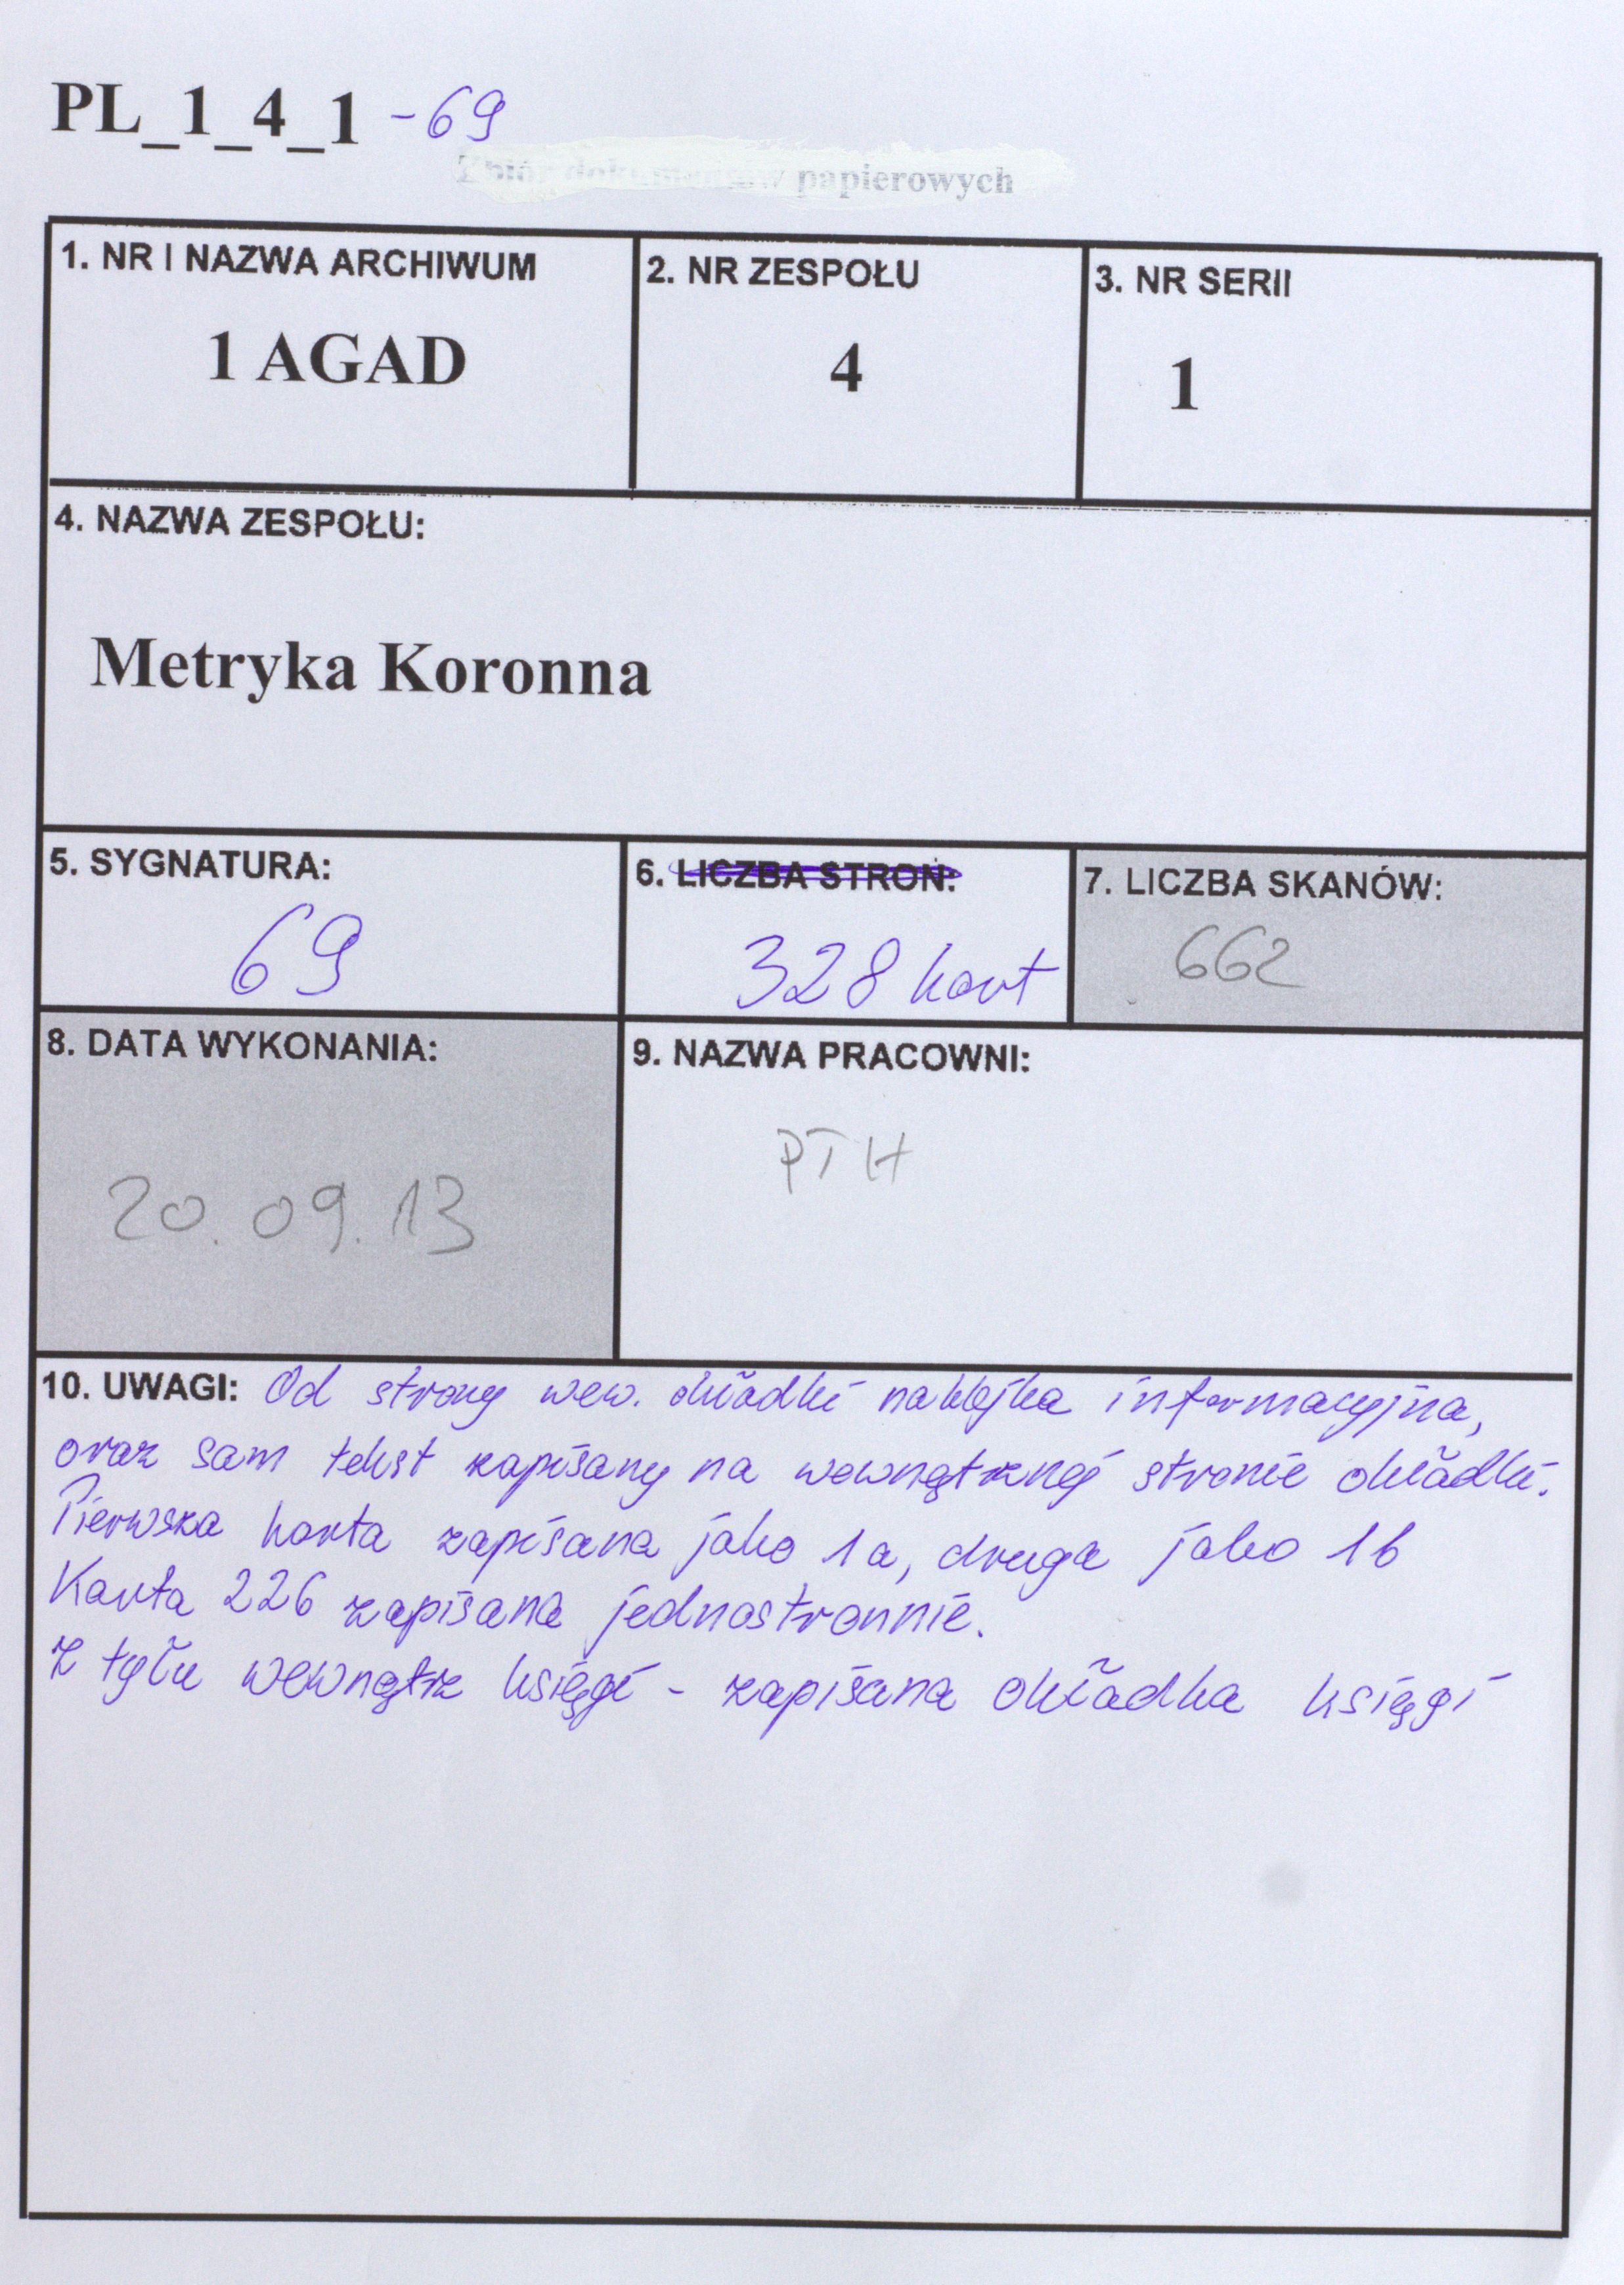 PL_1_4_1 -69
Zbiór dokumentów papierowych
1. NR I NAZWA ARCHIWUM
1 AGAD
2. NR ZESPOŁU
4
3. NR SERII
1
4. NAZWA ZESPOŁU:
Metryka Koronna
5. SYGNATURA:
69
6. LICZBA STRON:
328 kart
7. LICZBA SKANÓW:
662
8. DATA WYKONANIA:
20.09.13
9. NAZWA PRACOWNI:
PTH
10. UWAGI: Od strony wew. okładki naklejka informacyjna,
oraz sam tekst zapisany na wewnątrznej stronie okładki.
Pierwsza karta zapisana jako 1a, druga jako 1b
Karta 226 zapisana jednostronnie.
Z tyłu wewnątrz księgi - zapisana okładka księgi